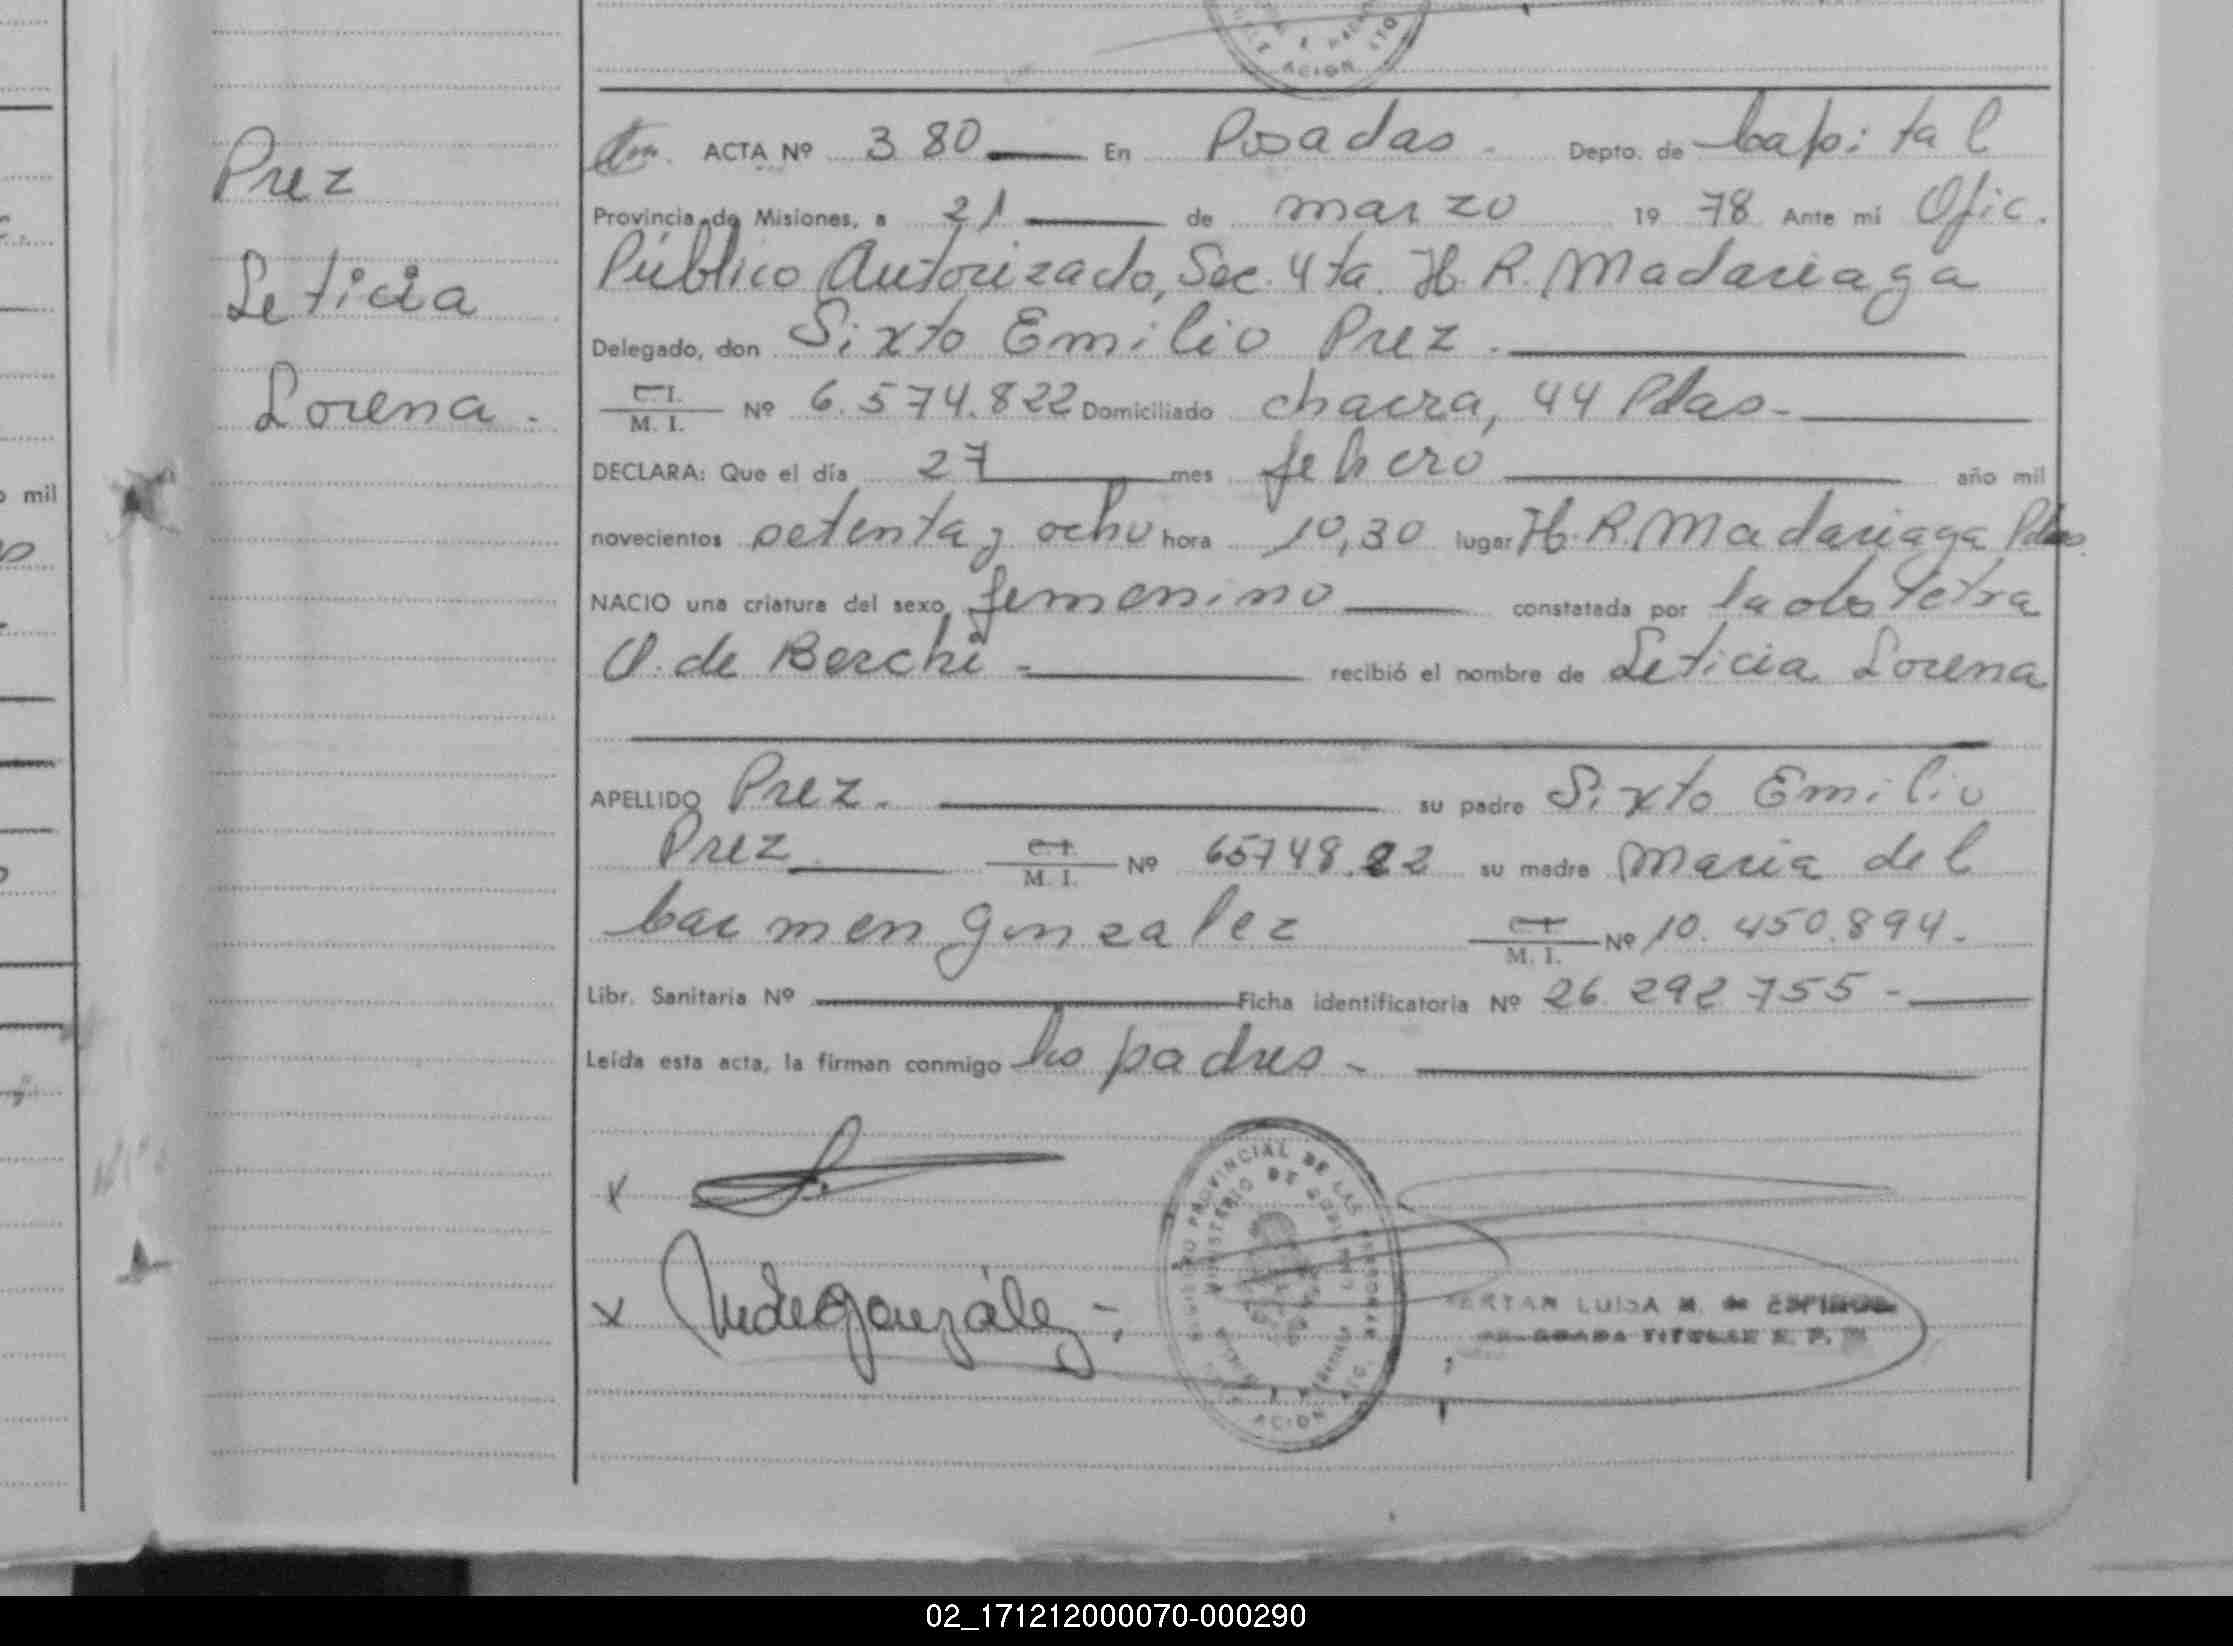 Prez
Leticia
Lorena.
ACTA Nº 380 En Posadas. Depto. de Capital
Provincia de Misiones, a 21 de marzo 19 78 Ante mí Ofic.
Público Autorizado, Sec. 4ta. H. R. Madariaga
Delegado, don Sixto Emilio Prez.
C. I.
M. I. Nº 6.574.822 Domiciliado chacra, 44 Pdas-
DECLARA: Que el día 27 mes febrero año mil
novecientos setenta y ocho hora 10,30 lugar H. R. Madariaga Pdas.
NACIO una criatura del sexo femenino constatada por la obstetra
O. de Berchi - recibió el nombre de Leticia Lorena
APELLIDO Prez. su padre Sixto Emilio
Prez C. I.
M. I. Nº 65748.22 su madre Maria del
Carmen Gonzalez C. I.
M. I. Nº 10.450.894.
Libr. Sanitaria Nº Ficha identificatoria Nº 26.292.755-
Leída esta acta, la firman conmigo los padres-
x
x González
PROVINCIAL DE LAS
MINISTERIO DE
LUISA M. de
TITULAR
mil
02_171212000070-000290